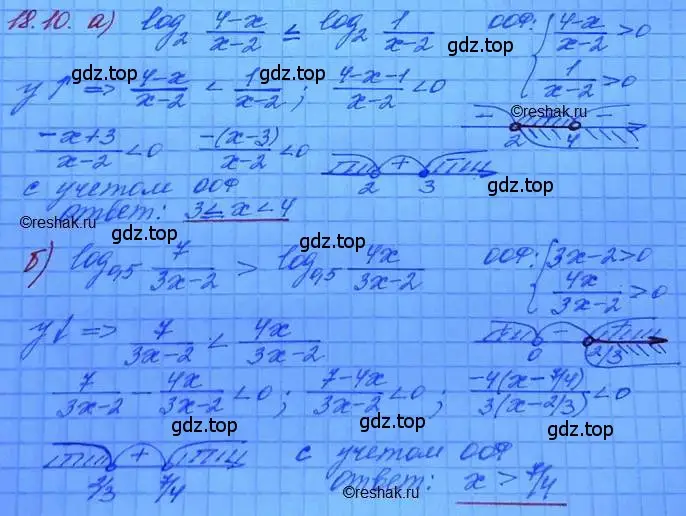 18.10. а) log₂ (4-x)/(x-2) ≤ log₂ 1/(x-2) ООФ: { (4-x)/(x-2) > 0
1/(x-2) > 0
gdz.top
y↑ => (4-x)/(x-2) < 1/(x-2) ; (4-x-1)/(x-2) < 0
gdz.top
©reshak.ru
- -
2 4
(-x+3)/(x-2) < 0 -(x-3)/(x-2) < 0
+
2 3
gdz.top
с учетом ООФ
©reshak.ru
ответ: 3 ≤ x < 4
gdz.top
б) log₀,₅ 7/(3x-2) > log₀,₅ 4x/(3x-2) ООФ: { 3x-2 > 0
4x/(3x-2) > 0
gdz.top
y↓ => 7/(3x-2) < 4x/(3x-2)
- +
0 2/3
©reshak.ru
7/(3x-2) - 4x/(3x-2) < 0 ; (7-4x)/(3x-2) < 0 ; -4(x-7/4)/3(x-2/3) < 0
gdz.top
gdz.top
+
2/3 7/4
с учетом ООФ
ответ: x > 7/4
gdz.top
gdz.top